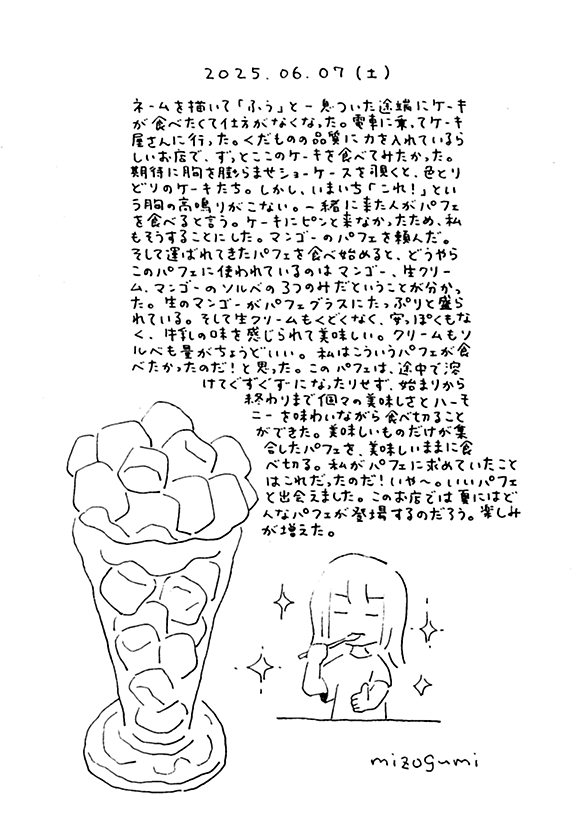 2025.06.07(土)
ネームを描いて「ふぅ」と一息ついた途端にケーキ
が食べたくて仕方がなくなった。電車に乗ってケーキ
屋さんに行った。くだものの品質に力を入れているら
しいお店で、ずっとここのケーキを食べてみたかった。
期待に胸を膨らませショーケースを覗くと、色とり
どりのケーキたち。しかし、いまいち「これ!」とい
う胸の高鳴りがこない。一緒に来た人がパフェ
を食べると言う。ケーキにピンと来なかったため、私
もそうすることにした。マンゴーのパフェを頼んだ。
そして運ばれてきたパフェを食べ始めると、どうやら
このパフェに使われているのはマンゴー、生クリー
ム、マンゴーのソルベの3つのみだということが分かっ
た。生のマンゴーがパフェグラスにたっぷりと盛ら
れている。そして生クリームもくどくなく、安っぽくもな
く、牛乳の味を感じられて美味しい。クリームもソ
ルベも量がちょうどいい。私はこういうパフェが食
べたかったのだ!と思った。このパフェは、途中で溶
けてぐずぐずになったりせず、始まりから
終わりまで個々の美味しさとハーモ
ニーを味わいながら食べ切ること
ができた。美味しいものだけが集
合したパフェを、美味しいままに食
べ切る。私がパフェに求めていたこと
はこれだったのだ!いや〜。いいパフェ
と出会えました。このお店では夏にはど
んなパフェが登場するのだろう。楽しみ
が増えた。
mizogumi